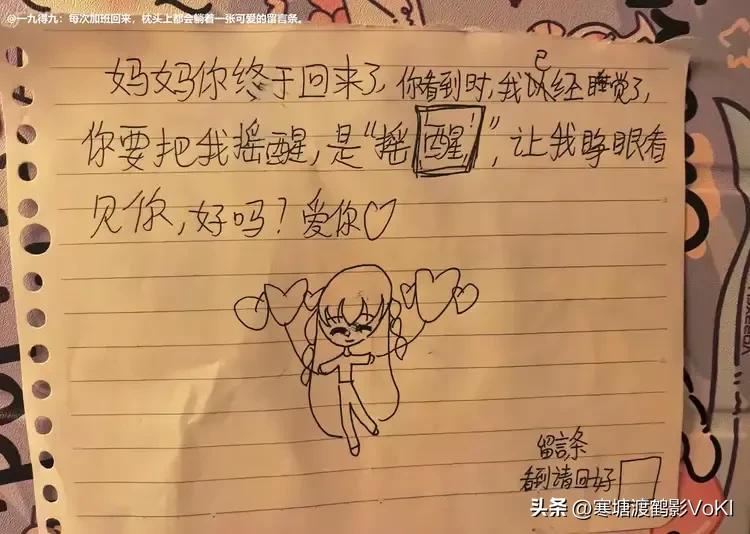 @一九得九：每次加班回来，枕头上都会躺着一张可爱的留言条。
妈妈你终于回来了，你看到时，我以经睡觉了，
已
你要把我摇醒，是“摇醒！”，让我睁眼看
见你，好吗？爱你♡
留言条
看到請回好
头条 @寒塘渡鹤影VoKI